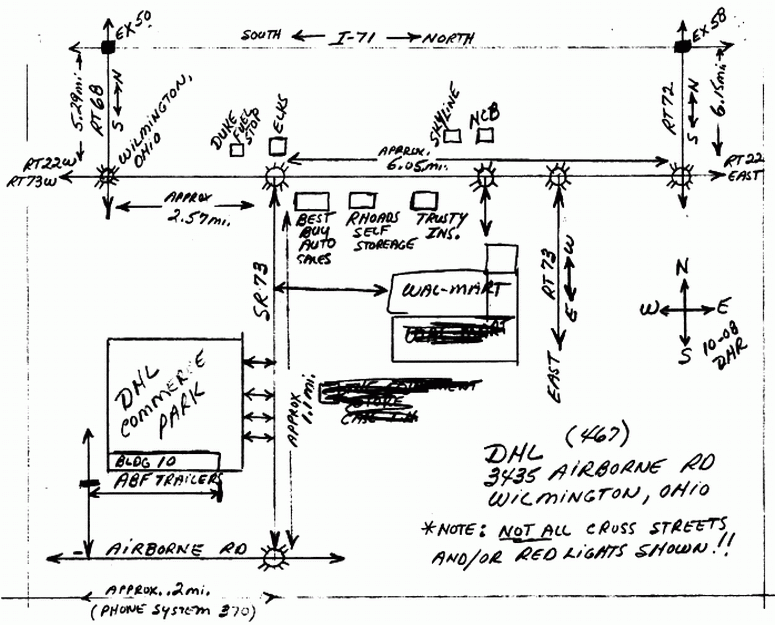 EX 50
SOUTH ← I-71 → NORTH
EX 58
5.29 mi.
RT 68
S ↔ N
WILMINGTON,
OHIO
DUKE
FUEL
STOP
ELKS
SKYLINE
NCB
RT 72
S ↔ N
6.15 mi.
RT 22W
RT 73W
APPROX.
6.05 mi.
RT 22
EAST
APPROX
2.57 mi.
BEST
BUY
AUTO
SALES
RHOADS
SELF
STOREAGE
TRUSTY
INS.
SR 73
WAL-MART
RT 73
E ↔ W
EAST
N
W E
S
10-08
DHR
DHL
COMMERCE
PARK
APPROX
1.1 mi.
BLDG 10
ABF TRAILERS
DHL (467)
3435 AIRBORNE RD
WILMINGTON, OHIO
*NOTE: NOT ALL CROSS STREETS
AND/OR RED LIGHTS SHOWN!!
AIRBORNE RD
APPROX. .2 mi.
(PHONE SYSTEM 370)